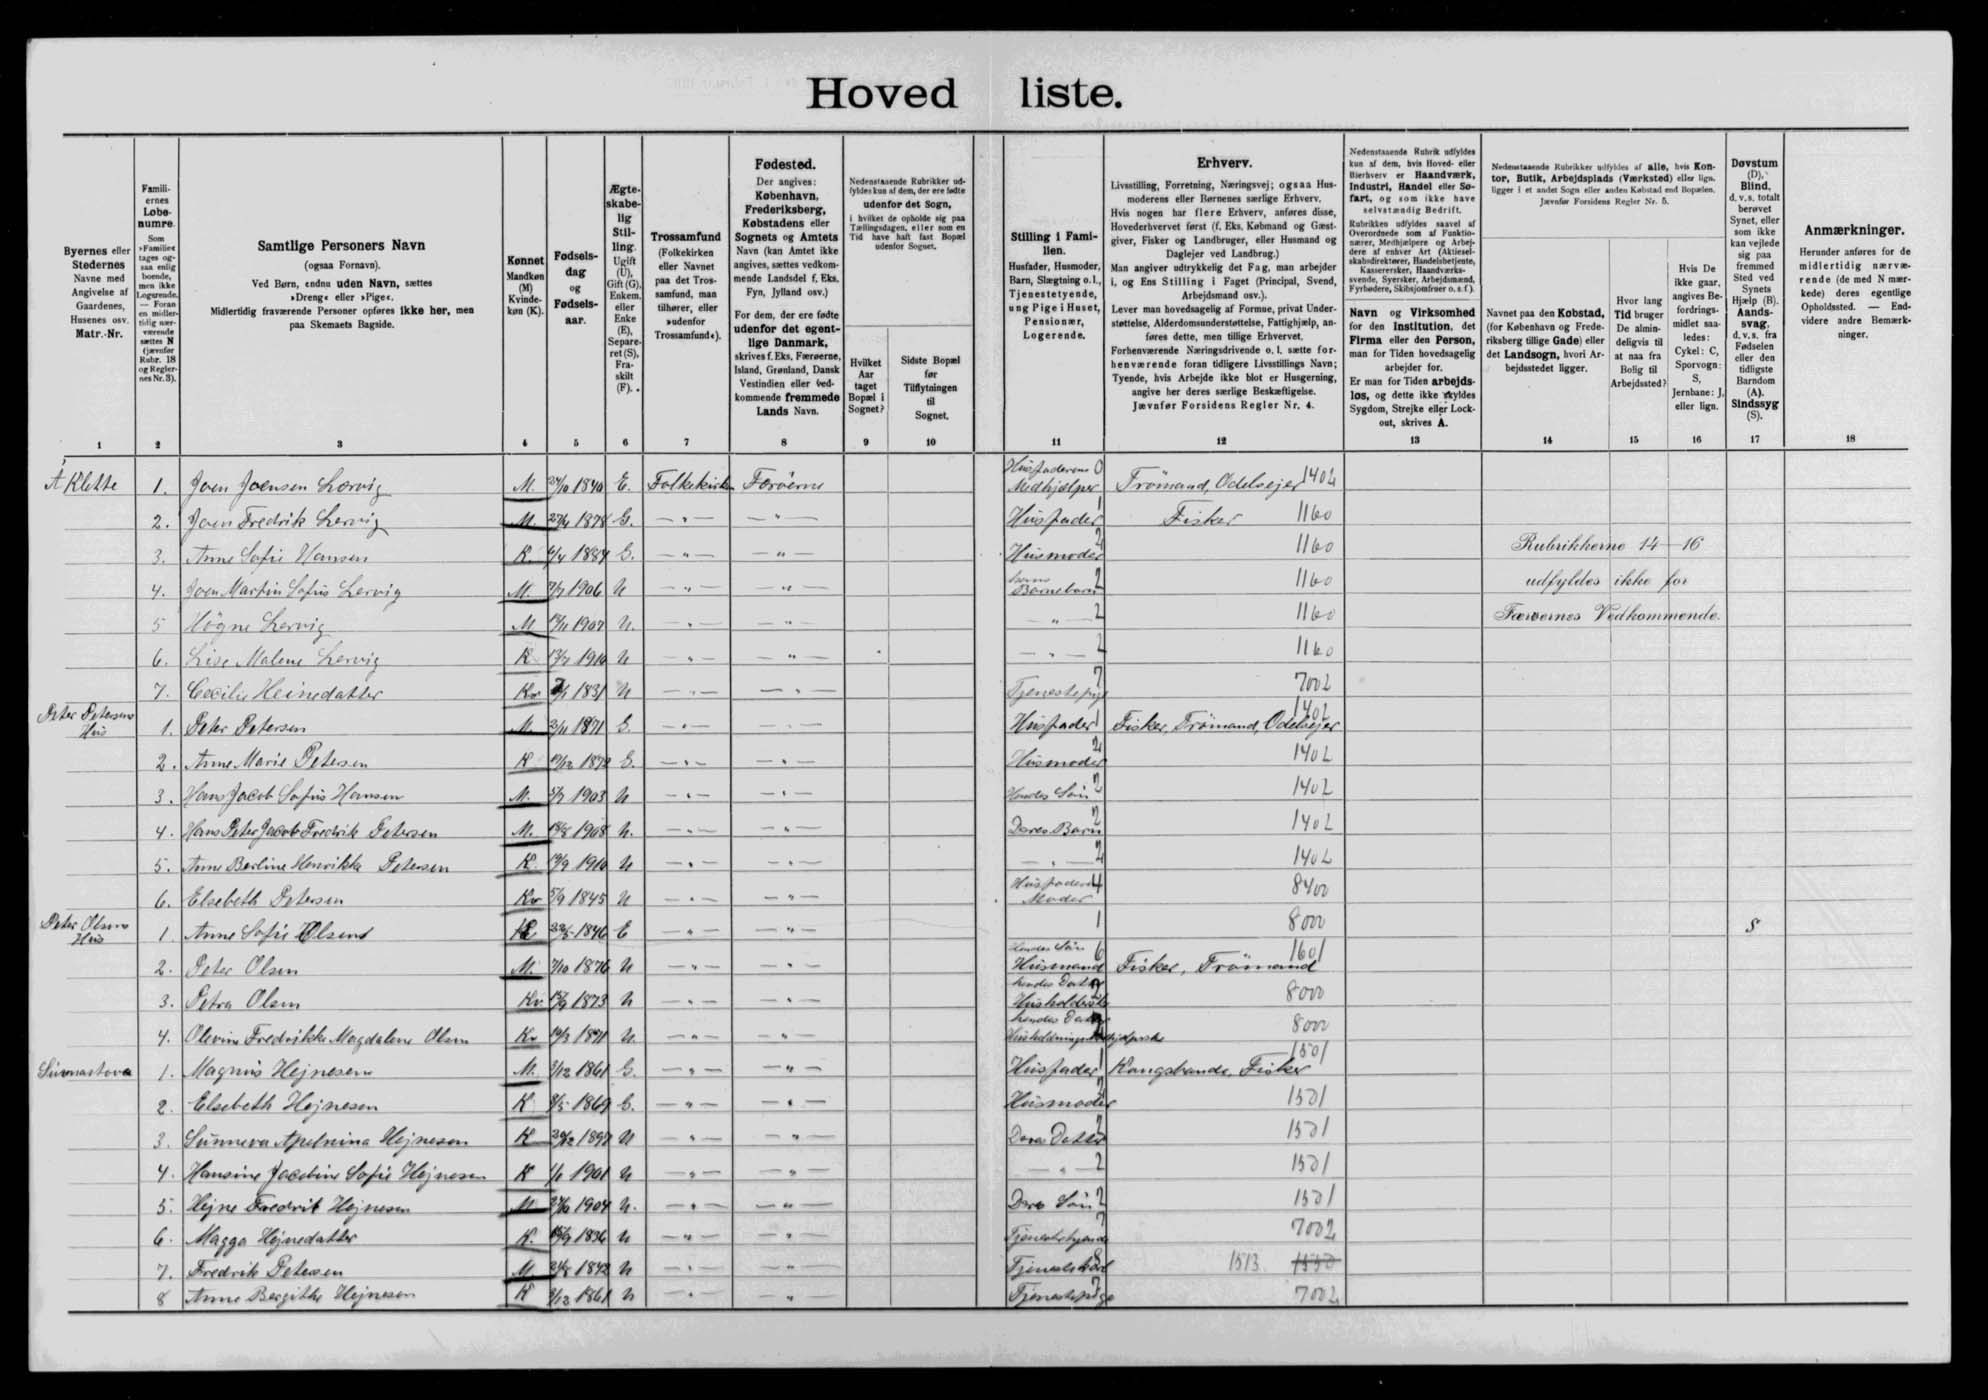 Hoved liste.
Byernes eller
Stedernes
Navne med
Angivelse af
Gaardenes,
Husenes osv.
Matr.-Nr.
1
Famili-
ernes
Løbe-
numre.
Som
»Familie«
tages og-
saa enlig
boende,
men ikke
Logerende.
— Foran
en midler-
tidig nær-
værende
sættes N
(jævnfør
Rubr. 18
og Regler-
nes Nr. 3).
2
Samtlige Personers Navn
(ogsaa Fornavn).
Ved Børn, endnu uden Navn, sættes
»Dreng« eller »Pige«.
Midlertidig fraværende Personer opføres ikke her, men
paa Skemaets Bagside.
3
Kønnet
Mandkøn
(M)
Kvinde-
køn (K).
4
Fødsels-
dag
og
Fødsels-
aar.
5
Ægte-
skabe-
lig
Stil-
ling.
Ugift
(U),
Gift (G),
Enkem.
eller
Enke
(E),
Separe-
ret (S),
Fra-
skilt
(F).
6
Trossamfund
(Folkekirken
eller Navnet
paa det Tros-
samfund, man
tilhører, eller
»udenfor
Trossamfund«).
7
Fødested.
Der angives:
København,
Frederiksberg,
Købstadens eller
Sognets og Amtets
Navn (kan Amtet ikke
angives, sættes vedkom-
mende Landsdel f. Eks.
Fyn, Jylland osv.)
For dem, der ere fødte
udenfor det egent-
lige Danmark,
skrives f. Eks. Færøerne,
Island, Grønland, Dansk
Vestindien eller ved-
kommende fremmede
Lands Navn.
8
Nedenstaaende Rubrikker ud-
fyldes kun af dem, der ere fødte
udenfor det Sogn,
i hvilket de opholde sig paa
Tællingsdagen, eller som en
Tid have haft fast Bopæl
udenfor Sognet.
Hvilket
Aar
taget
Bopæl i
Sognet?
9
Sidste Bopæl
før
Tilflytningen
til
Sognet.
10
Stilling i Fami-
lien.
Husfader, Husmoder,
Barn, Slægtning o. l.,
Tjenestetyende,
ung Pige i Huset,
Pensionær,
Logerende.
11
Erhverv.
Livsstilling, Forretning, Næringsvej; ogsaa Hus-
moderens eller Børnenes særlige Erhverv.
Hvis nogen har flere Erhverv, anføres disse,
Hovederhvervet først (f. Eks. Købmand og Gæst-
giver, Fisker og Landbruger, eller Husmand og
Daglejer ved Landbrug.)
Man angiver udtrykkelig det Fag, man arbejder
i, og Ens Stilling i Faget (Principal, Svend,
Arbejdsmand osv.).
Lever man hovedsagelig af Formue, privat Under-
støttelse, Alderdomsunderstøttelse, Fattighjælp, an-
føres dette, men tillige Erhvervet.
Forhenværende Næringsdrivende o. l. sætte for-
henværende foran tidligere Livsstillings Navn;
Tyende, hvis Arbejde ikke blot er Husgerning,
angive her deres særlige Beskæftigelse.
Jævnfør Forsidens Regler Nr. 4.
12
Nedenstaaende Rubrik udfyldes
kun af dem, hvis Hoved- eller
Bierhverv er Haandværk,
Industri, Handel eller Sø-
fart, og som ikke have
selvstændig Bedrift.
Rubrikken udfyldes saavel af
Overordnede som af Funktio-
nærer, Medhjælpere og Arbej-
dere af enhver Art (Aktiesel-
skabsdirektører, Handelsbetjente,
Kasserersker, Haandværks-
svende, Syersker, Arbejdsmænd,
Fyrbødere, Skibsjomfruer o. s. f.).
Navn og Virksomhed
for den Institution, det
Firma eller den Person,
man for Tiden hovedsagelig
arbejder for.
Er man for Tiden arbejds-
løs, og dette ikke skyldes
Sygdom, Strejke eller Lock-
out, skrives A.
13
Nedenstaaende Rubrikker udfyldes af alle, hvis Kon-
tor, Butik, Arbejdsplads (Værksted) eller lign.
ligger i et andet Sogn eller anden Købstad end Bopælen.
Jævnfør Forsidens Regler Nr. 5.
Navnet paa den Købstad,
(for København og Frede-
riksberg tillige Gade) eller
det Landsogn, hvori Ar-
bejdsstedet ligger.
14
Hvor lang
Tid bruger
De almin-
deligvis til
at naa fra
Bolig til
Arbejdssted?
15
Hvis De
ikke gaar,
angives Be-
fordrings-
midlet saa-
ledes:
Cykel: C,
Sporvogn:
S,
Jernbane: J,
eller lign.
16
Døvstum
(D),
Blind,
d. v. s. totalt
berøvet
Synet, eller
som ikke
kan vejlede
sig paa
fremmed
Sted ved
Synets
Hjælp (B).
Aands-
svag,
d. v. s. fra
Fødselen
eller den
tidligste
Barndom
(A).
Sindssyg
(S).
17
Anmærkninger.
Herunder anføres for de
midlertidig nærvæ-
rende (de med N mær-
kede) deres egentlige
Opholdssted. — End-
videre andre Bemærk-
ninger.
18
Á Klette 1. Joen Joensen Lervig M. 1840 E. Folkekirken Færöerne Husfaderens Medhjælper 0 Trömand, Odelsejer 1402
2. Joen Fredrik Lervig M. 1878 G. — " — — " — Husfader 1 Fisker 1160
3. Anne Sofie Hansen K. 1884 G. — " — — " — Husmoder 2 1160 Rubrikkerne 14 - 16
4. Joen Martin Sofus Lervig M. 1906 U — " — — " — Barnebarn 2 1160 udfyldes ikke for
5 Högne Lervig M 1907 U. — " — — " — — " — 2 1160 Færøernes Vedkommende.
6. Lise Malene Lervig K 1910 U — " — — " — — " — 2 1160
7. Cecilie Heinedatter Kv 1831 U — " — — " — Tjenestepige 7 7002
Peter Petersens Hus 1. Peter Petersen M. 1871 G. — " — — " — Husfader 1 Fisker, Trömand, Odelsejer 1402
2. Anne Marie Petersen K 1872 G. — " — — " — Husmoder 2 1402
3. Hans Jacob Sofus Hansen M. 5/7 1903 U — " — — " — Hendes Sön 2 1402
4. Hans Peter Jacob Fredrik Petersen M. 1908 U. — " — — " — Deres Barn 2 1402
5. Anne Berline Henrikka Petersen K. 1910 U — " — — " — — " — 2 1402
6. Elsebeth Petersen Kv 5/9 1845 U — " — — " — Husfaderens Moder 4 8400
Peter Olsens Hus 1. Anne Sofie Olsen K 1846 E — " — — " — 1 8000 S
2. Peter Olsen M. 7/10 1876 U — " — — " — Hendes Sön Husmand 6 Fisker, Trömand 1601
3. Petra Olsen Kv. 1873 U — " — — " — hendes Datter 2 8000
4. Olevine Fredrikke Magdalene Olsen Kv 1871 U. — " — — " — hendes Datter 8000
1. Magnus Hejnesen M. 3/12 1861 G. — " — — " — Husfader 1 Kongsbonde, Fisker 1501
2. Elsebeth Hejnesen K 8/5 1869 G. — " — — " — Husmoder 2 1501
3. Sunneva Apelnina Hejnesen K 1897 U — " — — " — Deres Datter 2 1501
4. Hansine Jacobine Sofie Hejnesen K 1901 U — " — — " — — " — 2 1501
5. Hejne Fredrik Hejnesen M 1904 U. — " — — " — Deres Sön 2 1501
6. Magga Hejnedatter K. 1836 U — " — — " — Tjenestetyende 7 7002
7. Fredrik Petersen M 1842 U — " — — " — Tjenestekarl 8 1513 1550
8 Anne Bergithe Hejnesen K 3/12 1861 U — " — — " — Tjenestepige 7 7002